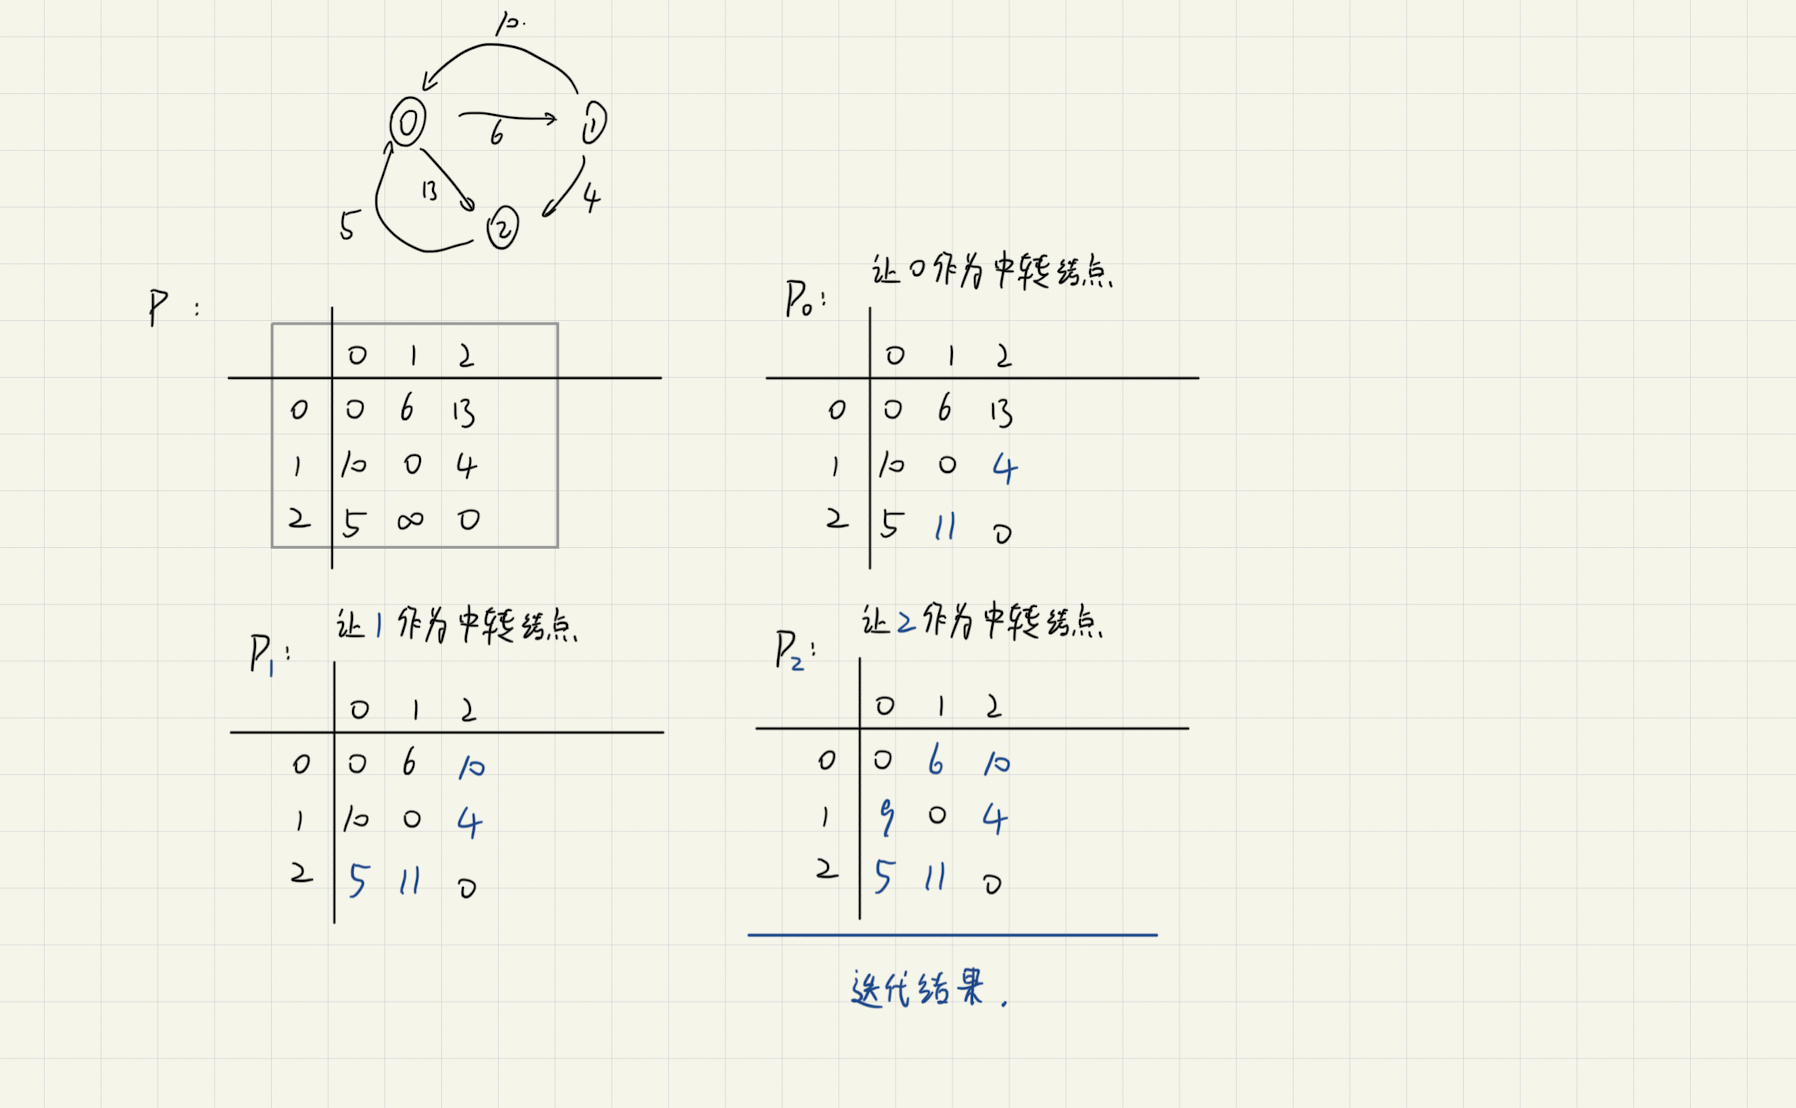 10.
0
6
1
13
4
5
2
P :
0 1 2
0 0 6 13
1 10 0 4
2 5 ∞ 0
让0作为中转结点.
P₀:
0 1 2
0 0 6 13
1 10 0 4
2 5 11 0
让1作为中转结点.
P₁:
0 1 2
0 0 6 10
1 10 0 4
2 5 11 0
让2作为中转结点.
P₂:
0 1 2
0 0 6 10
1 9 0 4
2 5 11 0
迭代结果.